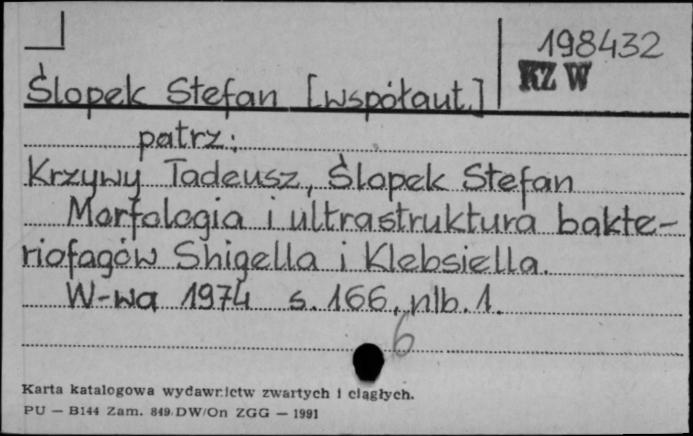 198432
KZ W
Ślopek Stefan [współaut.]
patrz:
Krzywy Tadeusz, Ślopek Stefan
Morfologia i ultrastruktura bakte-
riofagów Shigella i Klebsiella.
W-wa 1974 s. 166, nlb. 1.
6
Karta katalogowa wydawnictw zwartych i ciągłych.
PU — B144 Zam. 849/DW/On ZGG — 1991